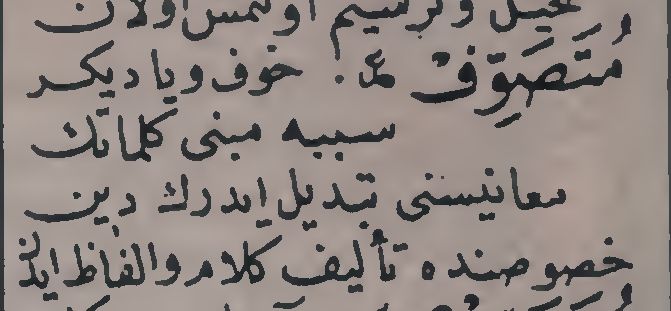 تخييل وترسيم اولنمش اولان
مُتَصَوِّفْ ع. خوف ويا ديكر
سببه مبنى كلماتك
معانيسنى تبديل ايدرك دين
خصوصنده تأليف كلام والفاظ ايدن